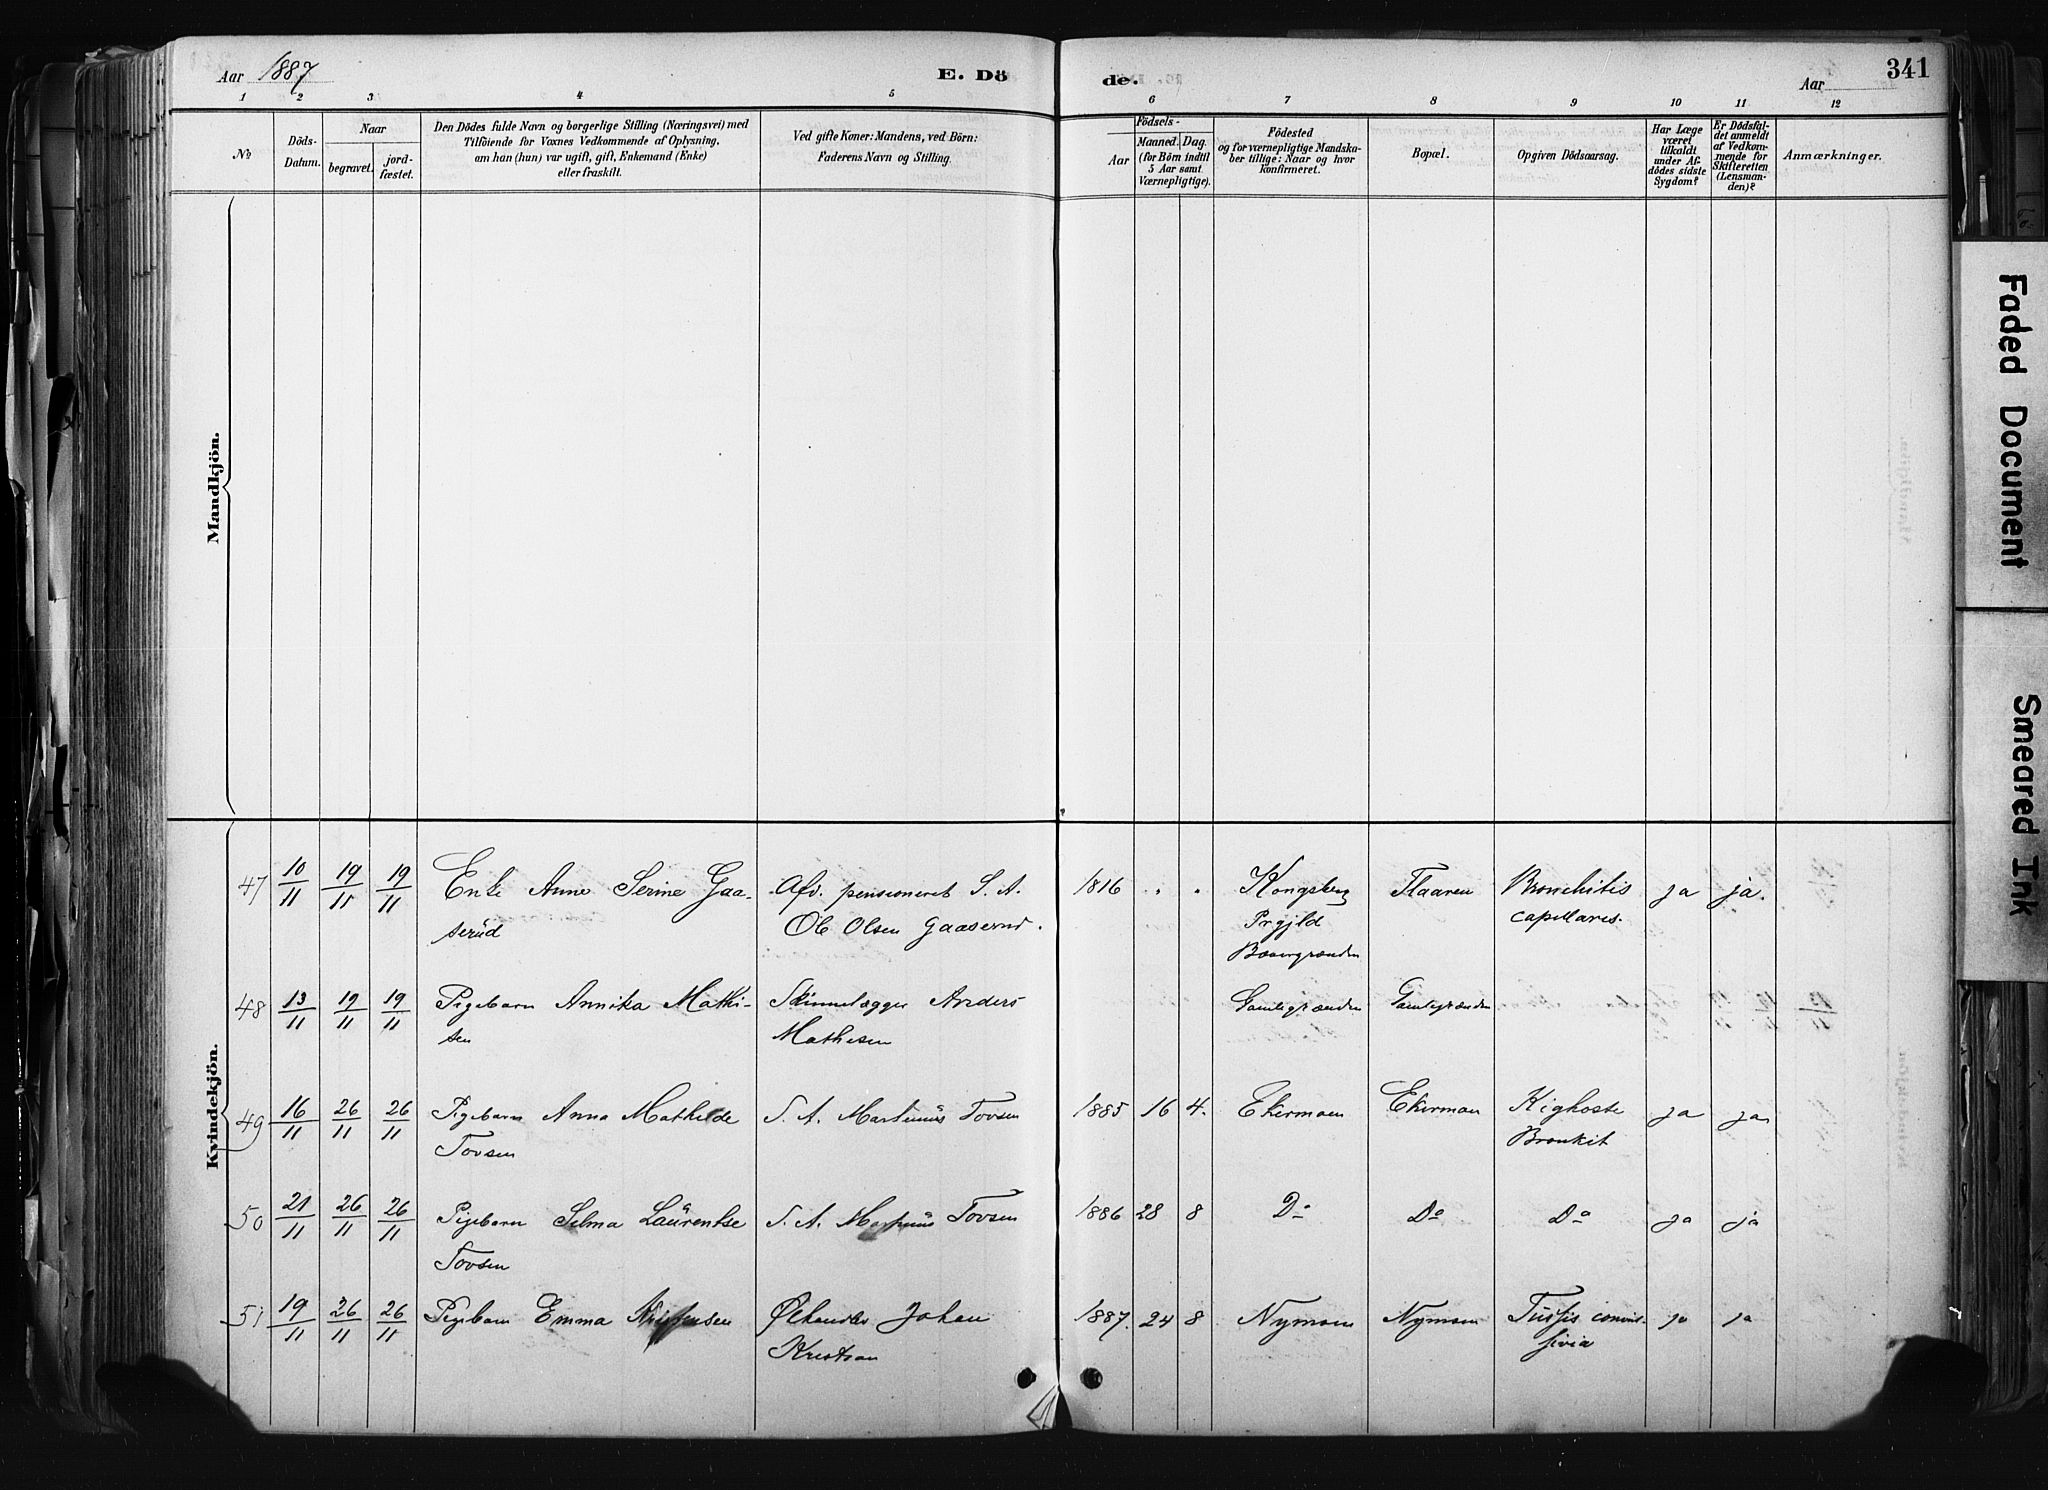 Aar 1887
E. Dö
de.
Aar
341
1 2 3 4 5 6 7 8 9 10 11 12
No
Döds-
Datum.
Naar
begravet.
jord-
fæstet.
Den Dödes fulde Navn og borgerlige Stilling (Næringsvei) med
Tilföiende for Voxnes Vedkommende af Oplysning,
om han (hun) var ugift, gift, Enkemand (Enke)
eller fraskilt.
Ved gifte Koner: Mandens, ved Börn:
Faderens Navn og Stilling.
Födsels-
Aar
Maaned. Dag.
(for Börn indtil
5 Aar samt
Værnepligtige).
Födested
og for værnepligtige Mandska-
ber tillige: Naar og hvor
konfirmeret.
Bopæl.
Opgiven Dödsaarsag.
Har Læge
været
tilkaldt
under Af-
dödes sidste
Sygdom?
Er Dödsfal-
det anmeldt
af Vedkom-
mende for
Skifteretten
(Lensman-
den)?
Anmærkninger.
Mandkjön.
Kvindekjön.
47 10/11 19/11 19/11 Enke Anne Serine Gaa- Afd. pensioneret S. A. 1816 " " Kongsberg Flaaren Bronchitis ja ja.
serud Ole Olsen Gaaserud. Prgjld capillaris.
Bævergrænden
48 13/11 19/11 19/11 Pigebarn Annika Mathi- Skinnelægger Anders Gamlegrænden Gamlegrænden
sen Mathisen
49 16/11 26/11 26/11 Pigebarn Anna Mathilde S. A. Martinius Tovsen 1885 16 4. Ekermoen Ekermoen Kighoste ja ja
Tovsen Bronkit
50 21/11 26/11 26/11 Pigebarn Selma Laurentse S. A. Martinius Tovsen 1886 28 8 Do Do Do ja ja
Tovsen
51 19/11 26/11 26/11 Pigebarn Emma Kristensen Ølhandler Johan 1887. 24 8 Nymoen Nymoen Tussis convul- ja ja
sivia
Faded Document
Smeared Ink